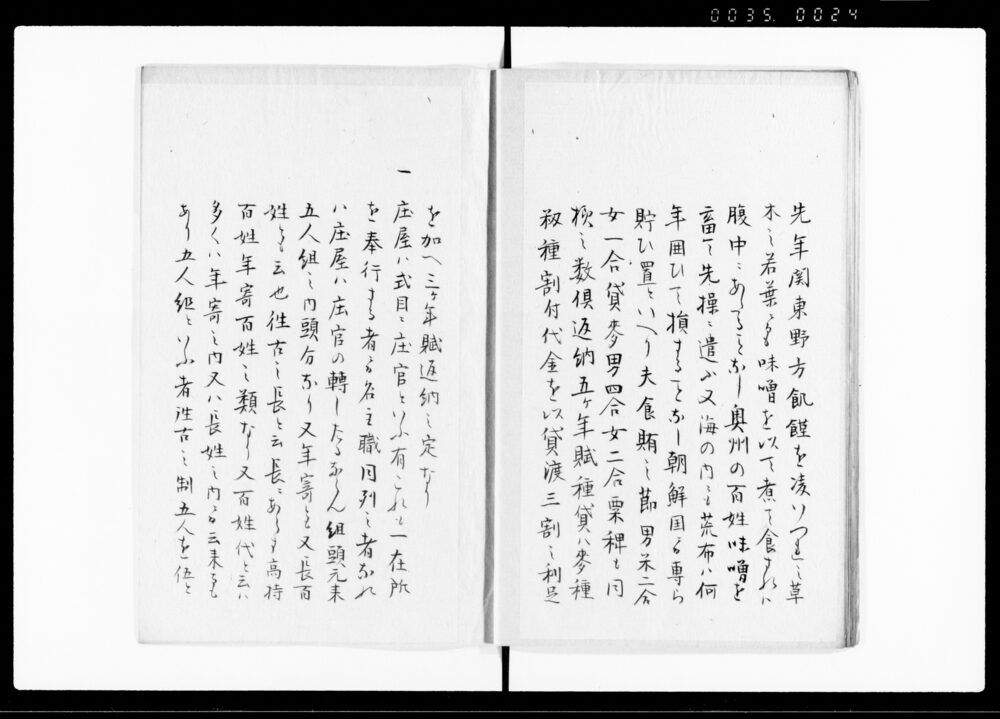 0035. 0024
先年関東野方飢饉を凌りつるニ草
木之若葉ニても味噌を以て煮て食すれハ
腹中ニあたることなし奥州の百姓味噌を
畜て先操ニ遣ふ又海の内ニも荒布ハ何
年囲ひて損することなし朝鮮国ニても専ら
貯ひ置といへり夫食賄之節男米二合
女一合貸麥男四合女二合粟稗も同
様之数倶返納五ケ年賦種貸ハ麥種
籾種割付代金を以貸渡三割之利足
を加へ三ケ年賦返納之定なり
一
庄屋ハ式目ニ庄官といふ有これも一在所
を奉行する者ニて名主職同列之者なれ
ハ庄屋ハ庄官の轉したるならん組頭元来
五人組之内頭分なり又年寄とも又長百
姓とも云也往古之長と云長ニあらす高持
百姓年寄百姓之類なり又百姓代と云ハ
多くハ年寄之内又ハ長姓之内ニて云来るも
あり五人組といふ者往古之制五人を伍と